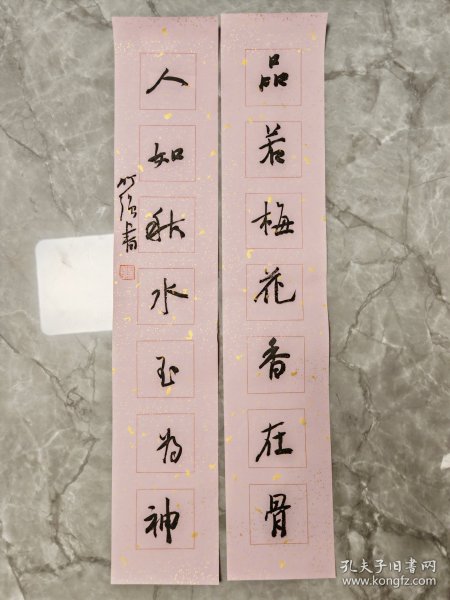 品若梅花香在骨
人如秋水玉为神
书
孔夫子旧书网
www.kongfz.com